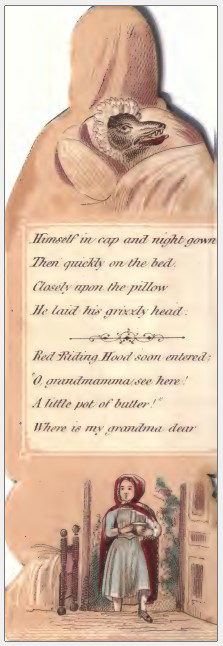 Himself in cap and night gown
Then quickly on the bed.
Closely upon the pillow
He laid his grizzly head.
Red Riding Hood soon entered;
"O grandmamma see here!
A little pot of butter!"
Where is my grandma dear